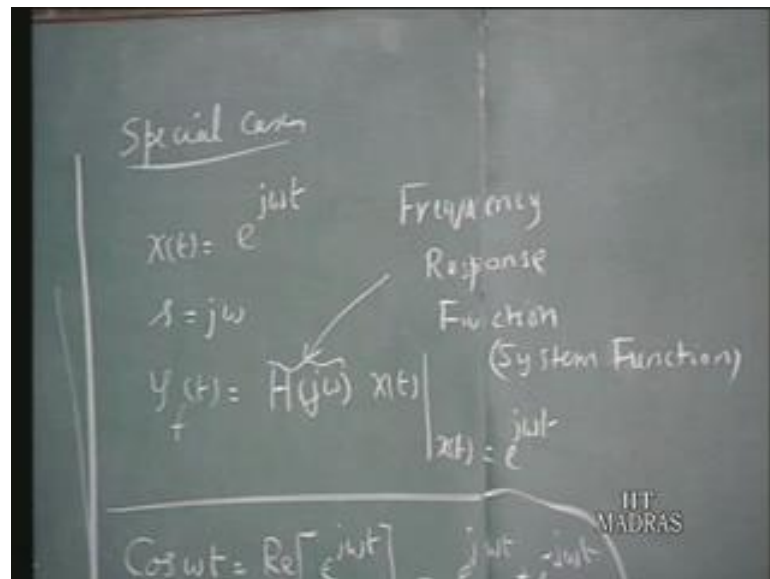 Special Cases
x(t) = e^jωt
s = jω
y_f(t) = H(jω) x(t) | x(t) = e^jωt
Frequency
Response
Function
(System Function)
Cos ωt = Re[e^jωt] = e^jωt + e^-jωt
IIT
MADRAS